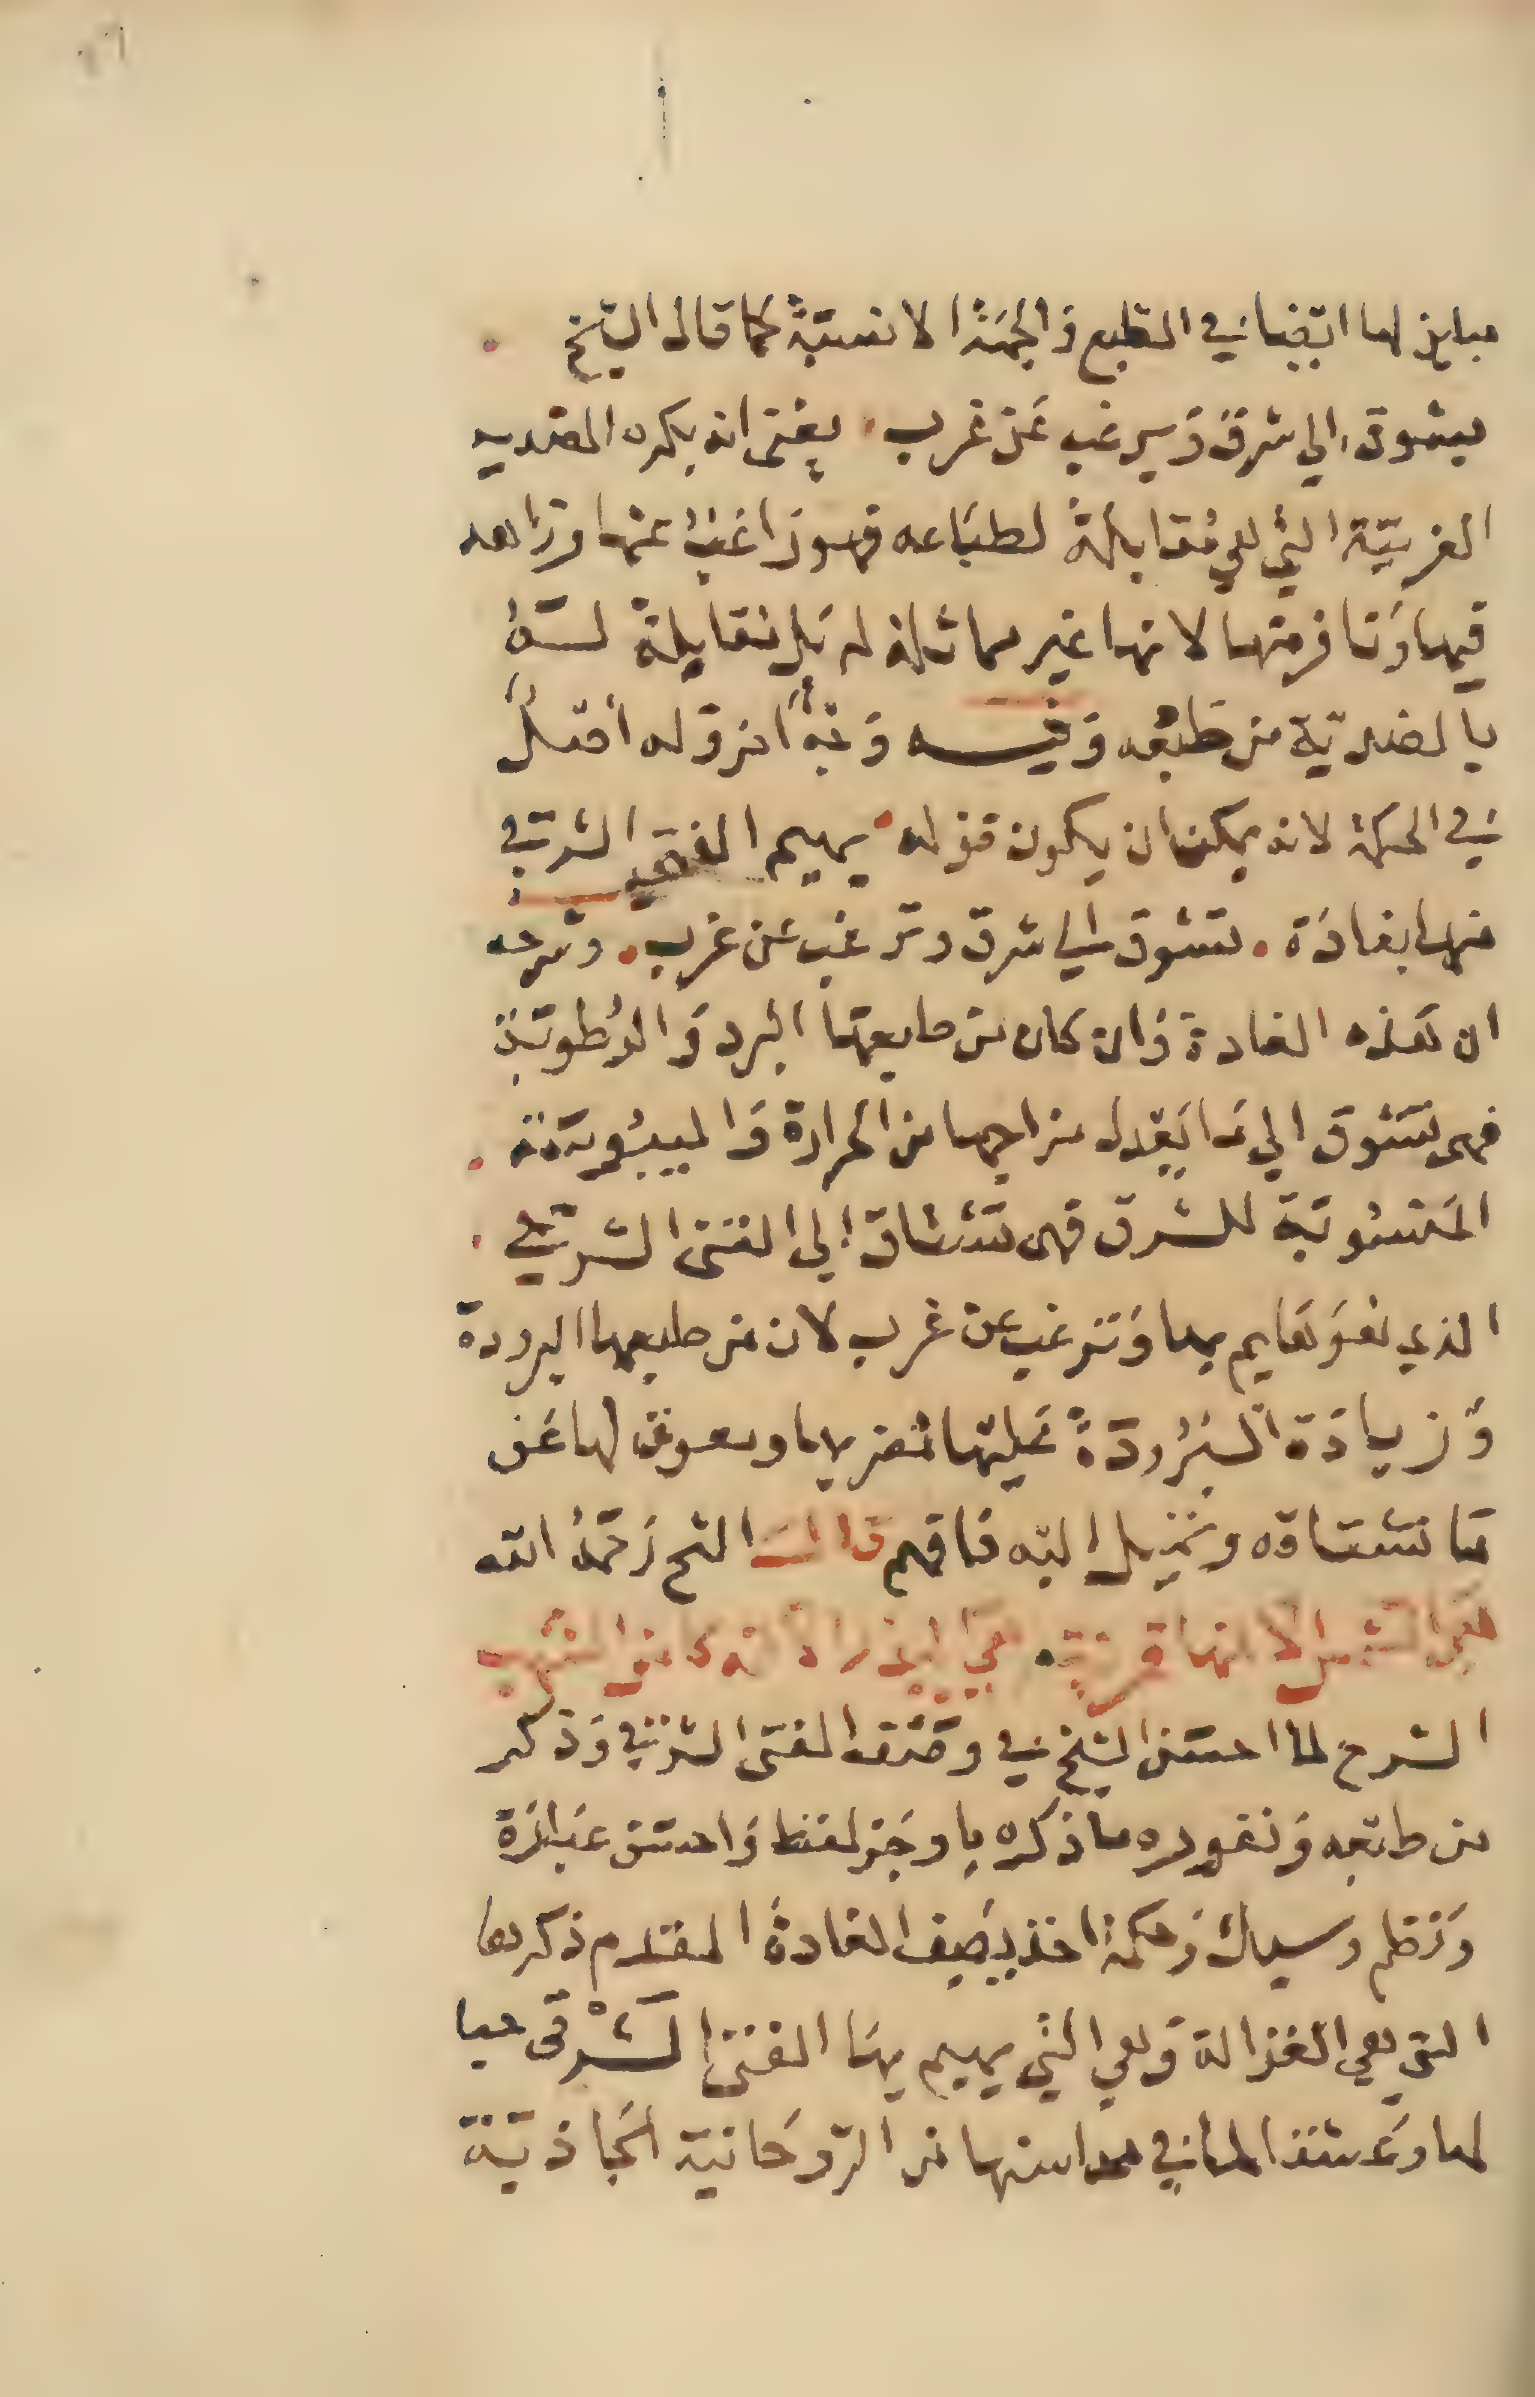 مباين لها ايضا في الطبع والجهة الا نسبة كما قال الشيخ
يشوق الي شرق ويرغب عن غرب يعني انه يكره الضديه
الغربية التي هي مقابلة لطباعه فهو راغب عنها وزاهد
فيها ونافر منها لانها غير مماثلة له بل مقابلة له
بالضدية من طبعه وفيه وجه اخر وله اصل
في الحكمة لانه يمكن ان يكون قوله يهيم الفتى الشرقي
منها بغادة تشوق الي شرق وترغب عن غرب
ان هذه الغادة وان كان من طابعها البرد والرطوبة
فهى تشوق الي ما يعدل مزاجها من الحرارة واليبوسة
المنسوبة للشرق فهى تشتاق الى الفتى الشرقي
الذي هو هايم بها وترغب عن غرب لان من طبعها البرودة
وزيادة البرودة عليها مضر بها ومعوق لها عن
ما تشتاقه وتميل اليه فافهم قال الشيخ رحمه الله
هي الشمس الا انها قمرية هي البدر الا انه كامل الشهب
الشرح لما احسن الشيخ في وصف الفتى الشرقي وذكر
من طابعه ما ذكره باوجز لفظ واحسن عبارة
ونظم وسبك وحكمة اخذ يصف الغادة المقدم ذكرها
التي هي الغزالة وهي التي يهيم بها الفتى الشرقى حبا
لها وعشقا لما في محاسنها من الروحانية الجاذبة